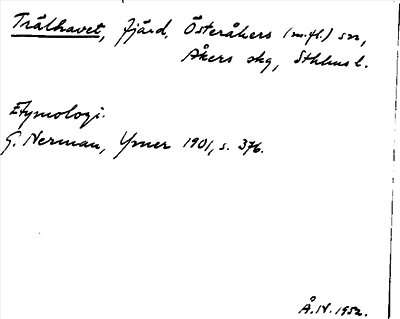 Trälhavet, fjärd, Österåkers (m.fl.) sn,
Åkers skg, Sthlms l.
Etymologi.
G. Nerman, Ymer 1901, s. 376.
Å.N. 1952.